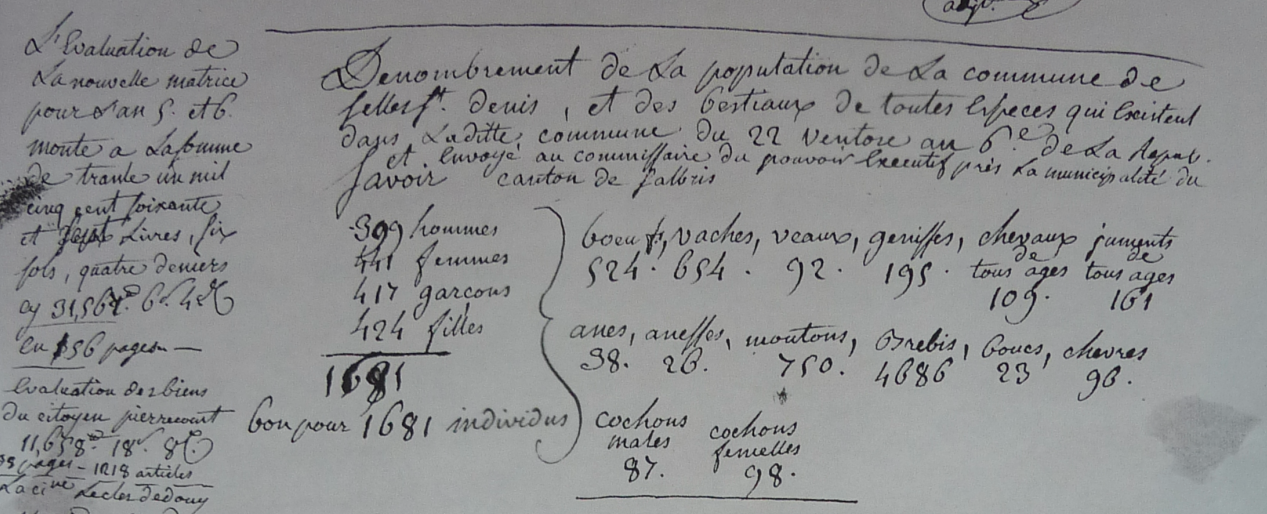 adj.t
L'Evaluation de
La nouvelle matrice
pour L'an 5. et 6.
monte a La somme
de trante un mil
cinq cent soixante
et sept Livres, six
sols, quatre deniers
cy 31,567.# 6.s 4.d
en 156 pages —
Evaluation des biens
du citoyen pierrecourt
11,658.# 18.s 8.d
pages — 1218 articles
Denombrement de La population de La commune de
selles st. denis, et des bestiaux de toutes Especes qui Existent
dans Laditte commune du 22 ventose an 6.e de La Repub.
et Envoyé au commissaire du pouvoir Executif près La municipalité du
savoir canton de salbris
399 hommes
441 femmes
417 garçons
424 filles
1681
bon pour 1681 individus
boeufs, vaches, veaux, genisses, chevaux juments
de de
524. 654. 92. 195. tous ages tous ages
109. 161
anes, anesses, moutons, Brebis, boucs, chevres
38. 26. 750. 4686 23 96.
cochons cochons
males femelles
87. 98.